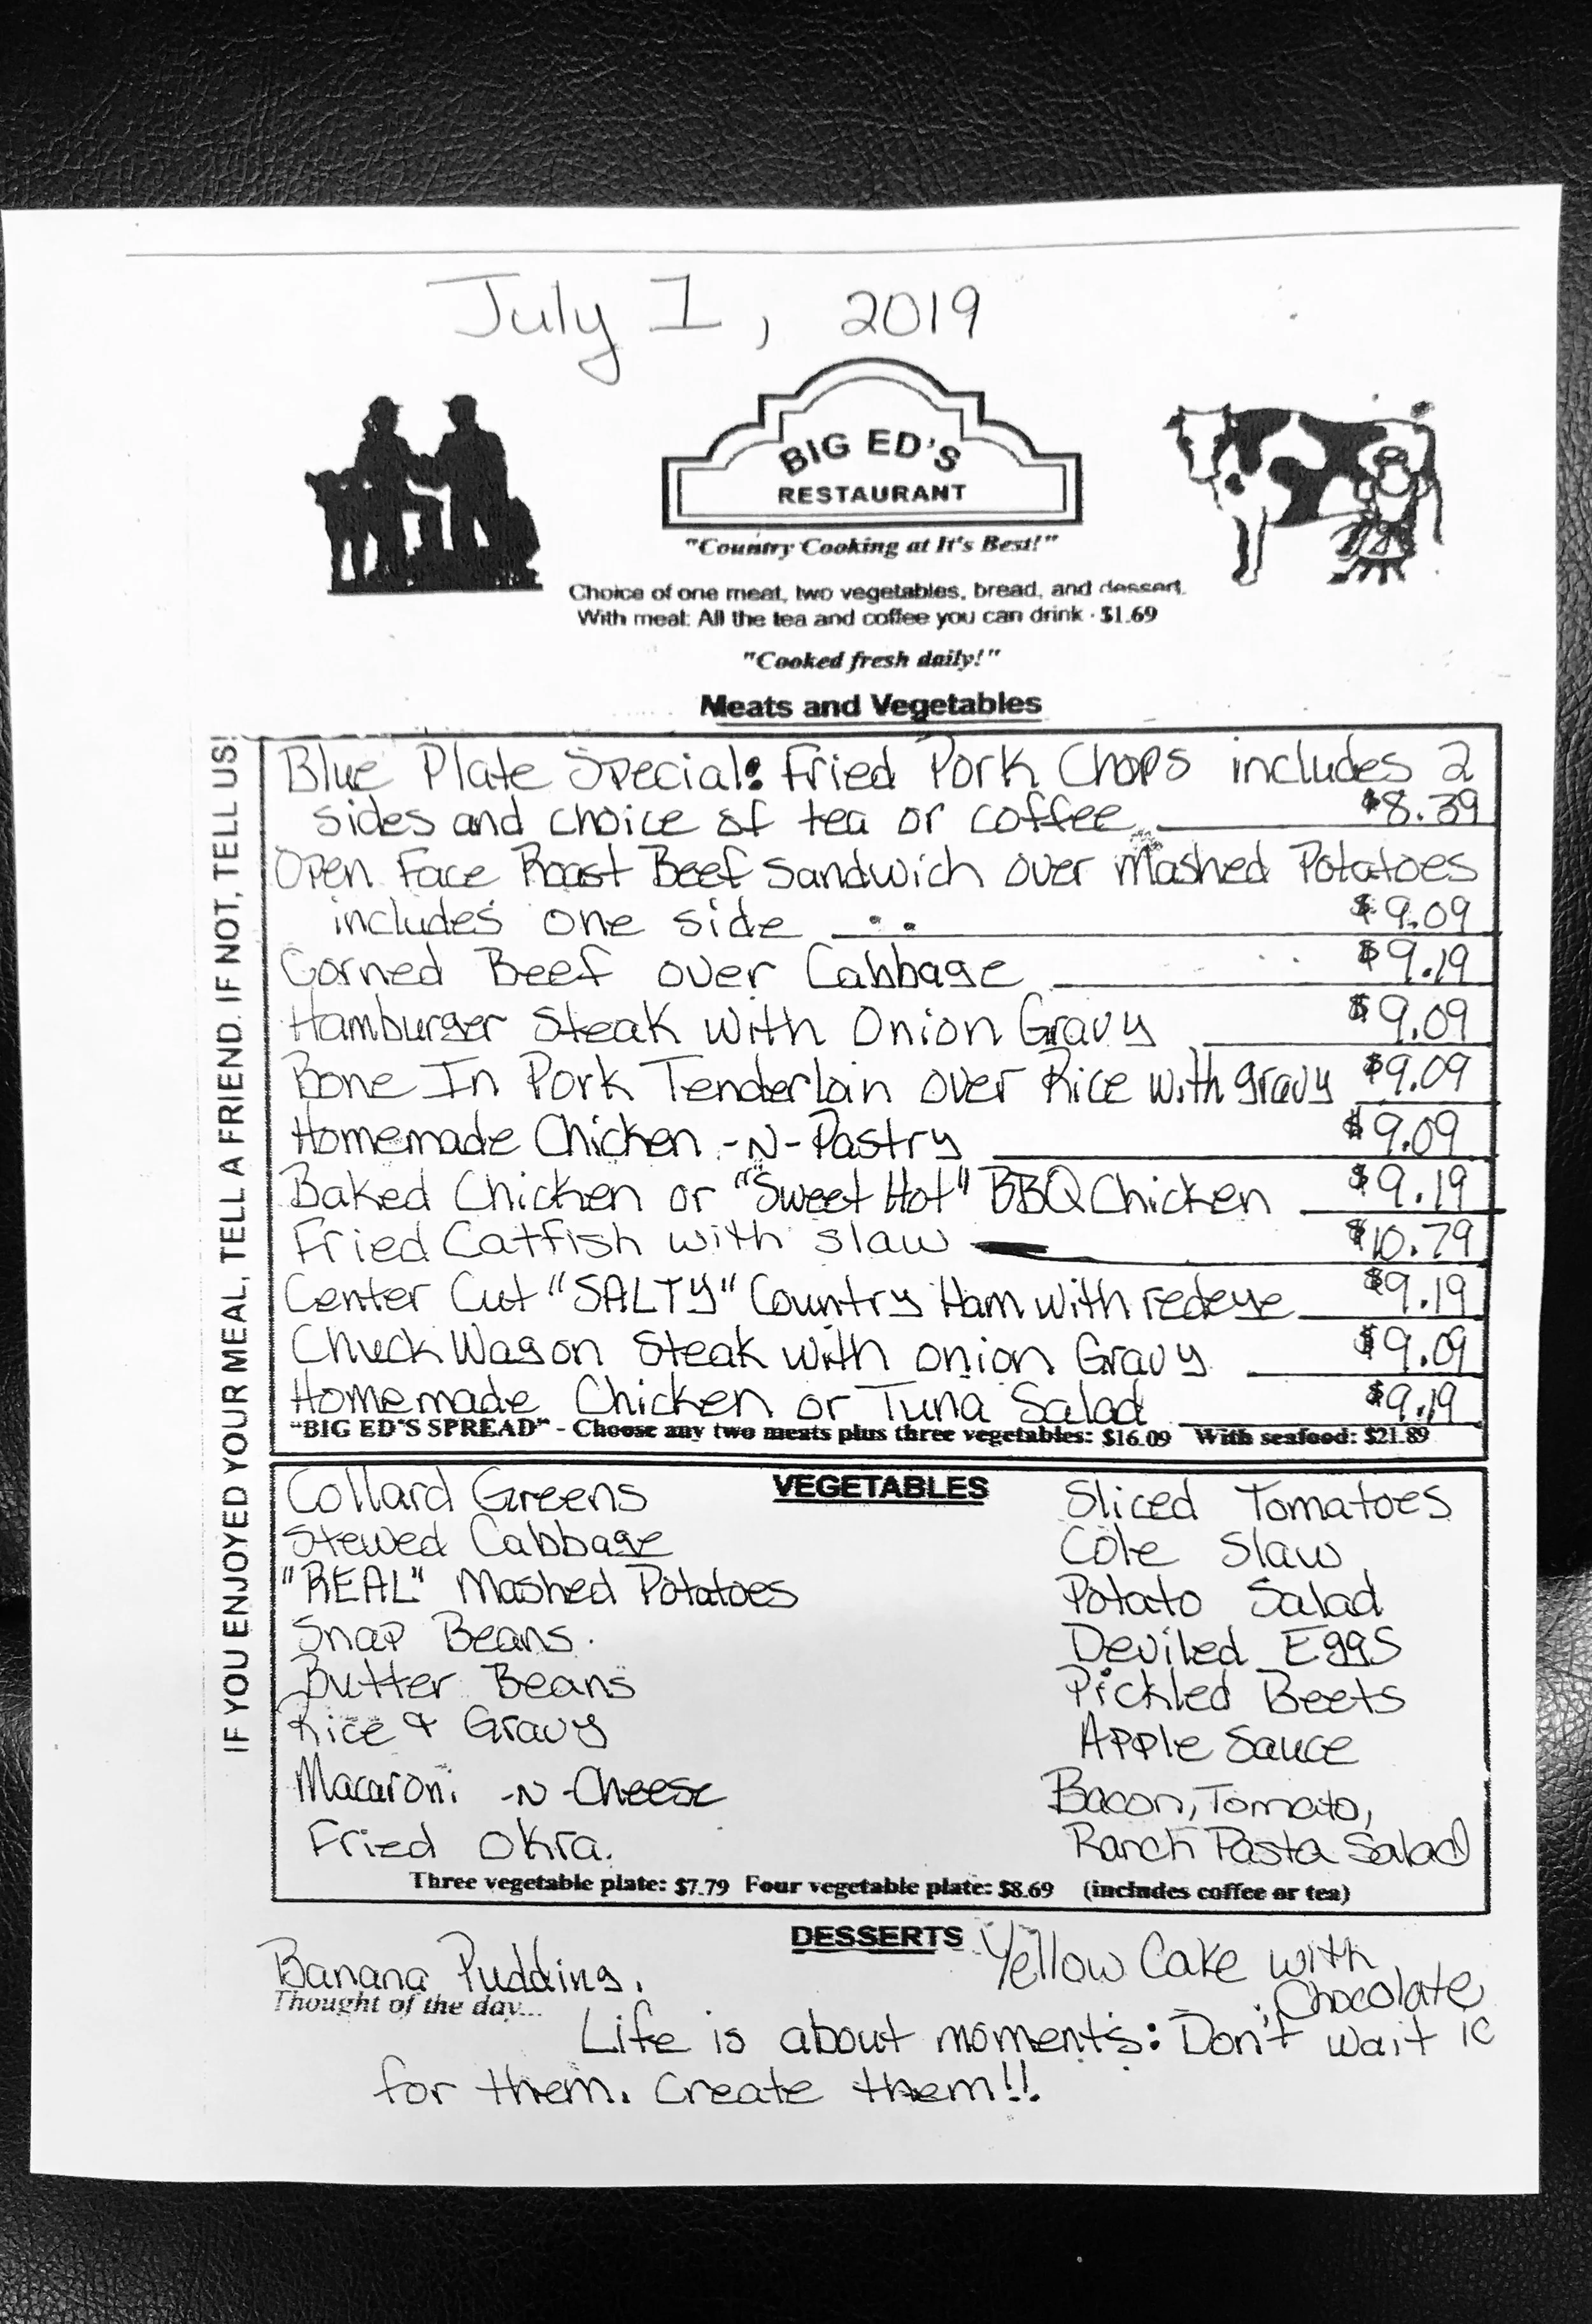 July 1, 2019
BIG ED'S
RESTAURANT
"Country Cooking at It's Best!"
Choice of one meat, two vegetables, bread, and dessert.
With meal: All the tea and coffee you can drink · $1.69
"Cooked fresh daily!"
Meats and Vegetables
IF YOU ENJOYED YOUR MEAL, TELL A FRIEND. IF NOT, TELL US!
Blue Plate Special: Fried Pork Chops includes 2
sides and choice of tea or coffee $8.39
Open Face Roast Beef Sandwich over Mashed Potatoes
includes one side $9.09
Corned Beef over Cabbage $9.19
Hamburger Steak with Onion Gravy $9.09
Bone In Pork Tenderloin over Rice with gravy $9.09
Homemade Chicken -N- Pastry $9.09
Baked Chicken or "Sweet Hot" BBQ Chicken $9.19
Fried Catfish with slaw $10.79
Center Cut "SALTY" Country Ham with redeye $9.19
Chuck Wagon Steak with onion Gravy $9.09
Homemade Chicken or Tuna Salad $9.19
"BIG ED'S SPREAD" - Choose any two meats plus three vegetables: $16.09 With seafood: $21.89
VEGETABLES
Collard Greens
Stewed Cabbage
"REAL" Mashed Potatoes
Snap Beans.
Butter Beans
Rice & Gravy
Macaroni -N- Cheese
Fried Okra.
Sliced Tomatoes
Cole Slaw
Potato Salad
Deviled Eggs
Pickled Beets
Apple Sauce
Bacon, Tomato,
Ranch Pasta Salad
Three vegetable plate: $7.79 Four vegetable plate: $8.69 (includes coffee or tea)
DESSERTS
Banana Pudding.
Yellow Cake with
Chocolate
ic
Thought of the day...
Life is about moments: Don't wait
for them. Create them!!